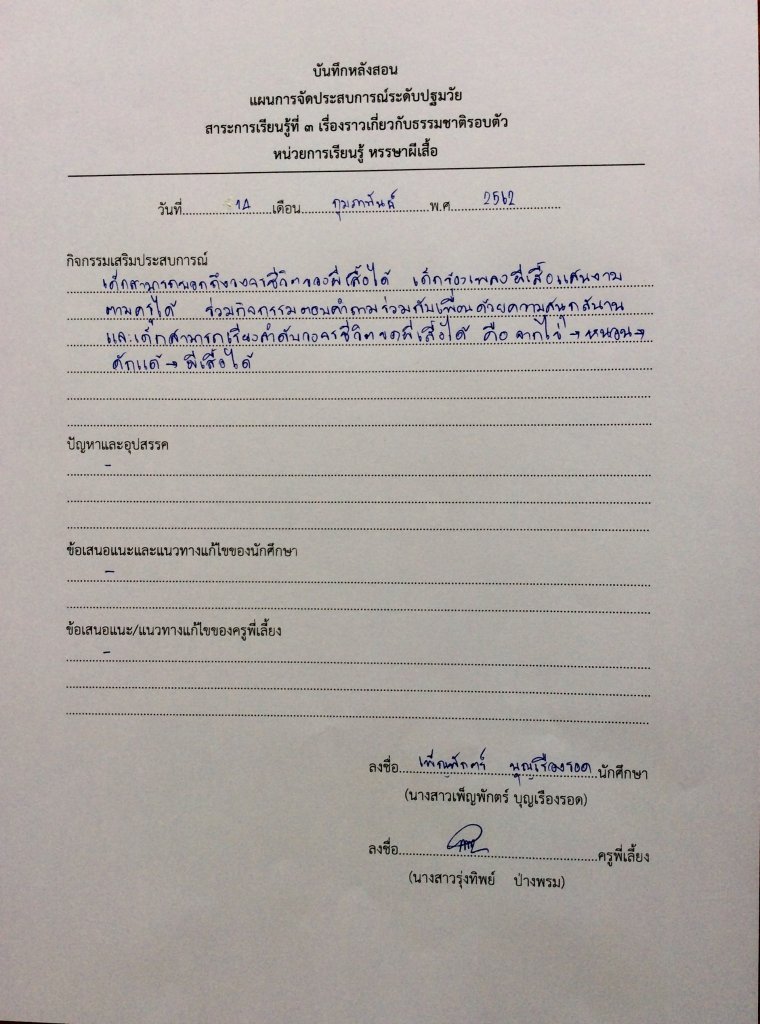 บันทึกหลังสอน
แผนการจัดประสบการณ์ระดับปฐมวัย
สาระการเรียนรู้ที่ ๓ เรื่องราวเกี่ยวกับธรรมชาติรอบตัว
หน่วยการเรียนรู้ หรรษาผีเสื้อ
วันที่ 14 เดือน กุมภาพันธ์ พ.ศ. 2562
กิจกรรมเสริมประสบการณ์
เด็กสามารถบอกถึงวงจรชีวิตของผีเสื้อได้ เด็กร้องเพลงผีเสื้อแสนงาม
ตามครูได้ ร่วมกิจกรรมตอบคำถามร่วมกับเพื่อนด้วยความสนุกสนาน
และเด็กสามารถเรียงลำดับวงจรชีวิตของผีเสื้อได้ คือ จากไข่ → หนอน →
ดักแด้ → ผีเสื้อได้
ปัญหาและอุปสรรค
-
ข้อเสนอแนะและแนวทางแก้ไขของนักศึกษา
-
ข้อเสนอแนะ/แนวทางแก้ไขของครูพี่เลี้ยง
-
ลงชื่อ เพ็ญพักตร์ บุญเรืองรอด นักศึกษา
(นางสาวเพ็ญพักตร์ บุญเรืองรอด)
ลงชื่อ ครูพี่เลี้ยง
(นางสาวรุ่งทิพย์ ป่างพรม)